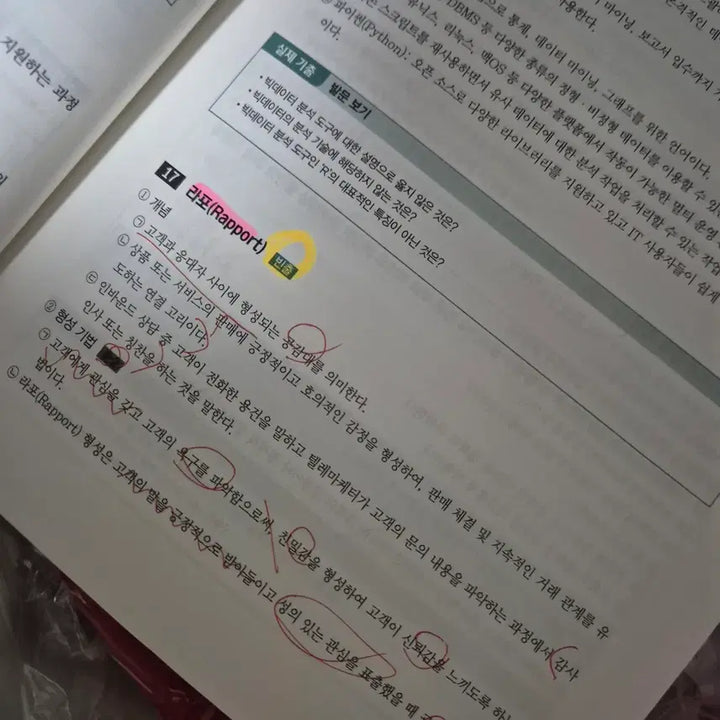 지원하는 과정
마이닝, 보고서 임수까지
으로 통계, 데이터 마이닝, 그래프를 위한 언어이다.
DBMS 등 다양한 종류의 정형·비정형 데이터를 이용할 수 있
유닉스, 리눅스, 맥OS 등 다양한 플랫폼에서 작동이 가능한 멀티 운영
스크립트를 재사용하면서 유사 데이터에 대한 분석 작업을 처리할 수 있는 작업
파이썬(Python): 오픈 소스로 다양한 라이브러리를 지원하고 있고 IT 사용자들이 쉽게
이다.
실제 기출 발문 보기
• 빅데이터 분석 도구에 대한 설명으로 옳지 않은 것은?
• 빅데이터의 분석 기술에 해당하지 않는 것은?
• 빅데이터 분석 도구인 'R'의 대표적인 특징이 아닌 것은?
17 라포(Rapport) 빈출
① 개념
㉠ 고객과 응대자 사이에 형성되는 공감대를 의미한다.
㉡ 상품 또는 서비스의 판매에 긍정적이고 호의적인 감정을 형성하여, 판매 체결 및 지속적인 거래 관계를 유
도하는 연결 고리이다.
㉢ 인바운드 상담 중 고객이 전화한 용건을 말하고 텔레마케터가 고객의 문의 내용을 파악하는 과정에서 감사
인사 또는 칭찬을 하는 것을 말한다.
② 형성 기법
㉠ 고객에게 관심을 갖고 고객의 욕구를 파악함으로써, 친밀감을 형성하여 고객이 신뢰감을 느끼도록 하는
법이다.
㉡ 라포(Rapport) 형성은 고객의 말을 긍정적으로 받아들이고 성의 있는 관심을 표출했을 때